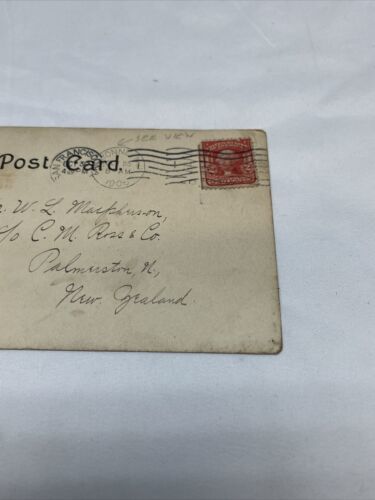 SEE VIEW
Post Card.
SAN FRANCISCO
1905
W. L. Macpherson,
C. M. Ross & Co.
Palmerston, N.,
New Zealand.